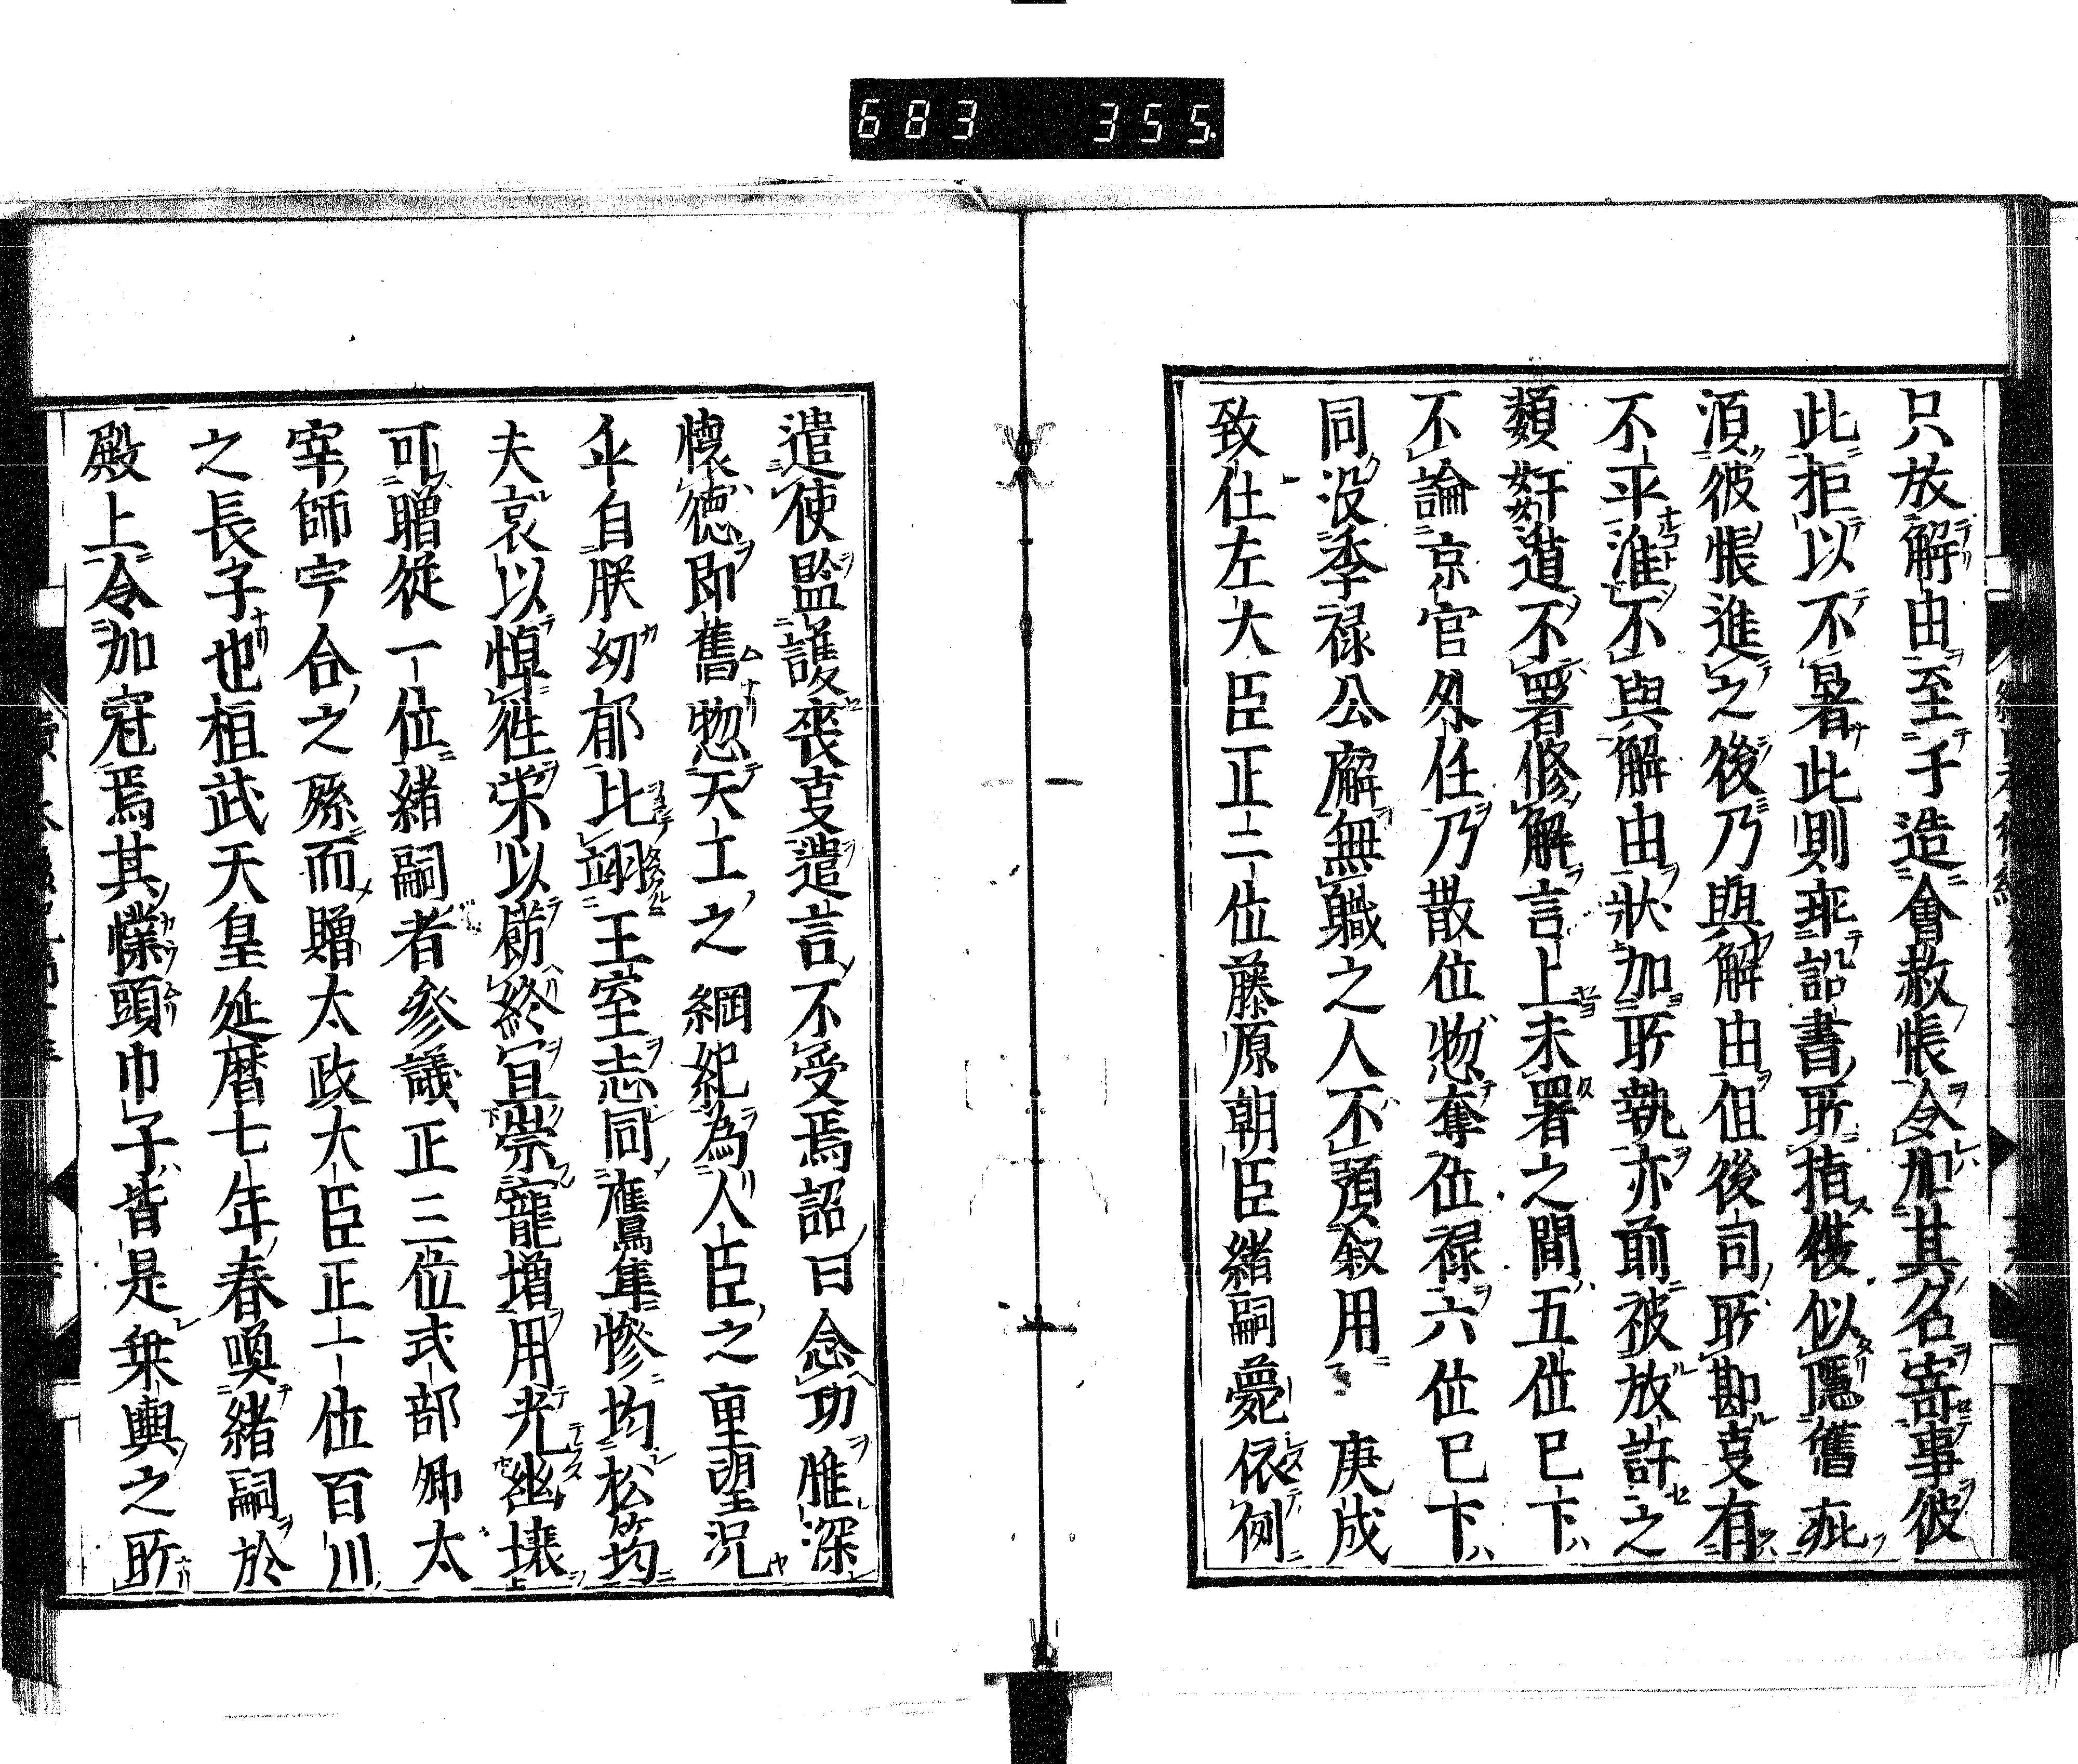 683 355
只放解由至于造會赦帳令加其名寄事彼
此拒以不署此則乖詔書所指僕似隱舊疵
須彼帳進之後乃與解由但後司所勘㕝有
不平准不與解由狀加所執亦前被放許之
類奸道不署修解言上未署之間五位已下
不論京官外任乃散位惣奪位禄六位已下
同没季禄公廨無職之人不預叙用 庚戌
致仕左大臣正二位藤原朝臣緒嗣薨依例
遣使監護喪㕝遣言不受焉詔曰念功雖深
懷徳即舊惣天工之綱紀為人臣之重望況
乎自朕幼郁比翊王室志同鷹隼惨均松筠
夫哀以悼徃栄以餝終宜崇寵増用光幽壌
可贈從一位緒嗣者參議正三位式部卿太
宰師宇合之孫而贈太政大臣正一位百川
之長子也桓武天皇延暦七年春喚緒嗣於
殿上令加冠焉其幞頭巾子皆是乗輿之所